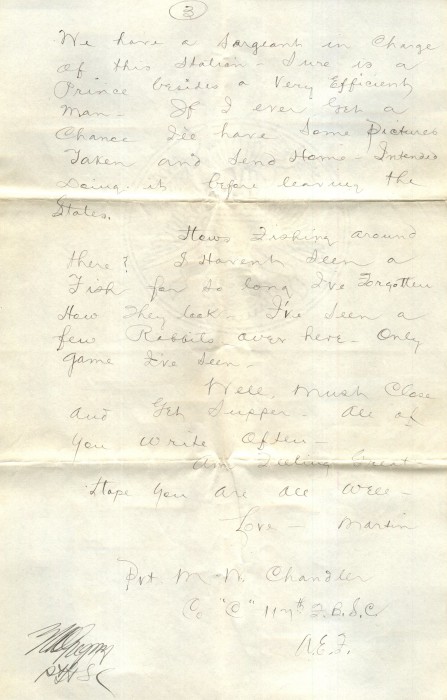 3
We have a Sargeant in Charge
of this Station - Sure is a
Prince besides a Very Efficient
Man - If I ever Get a
Chance I'll have Some Pictures
Taken and Send Home - Intended
Doing it before leaving the
States.
Hows Fishing around
there? I Havent Seen a
Fish for so long I've Forgotten
How They look - I've Seen a
few Rabbits over here - Only
game I've Seen -
Well, Must Close
and Get Supper - All of
You Write Often -
Am Feeling Great -
Hope You Are All Well -
Love - Martin
Pvt M. M. Chandler
Co "C" 117th F.B.S.C
A.E.F.